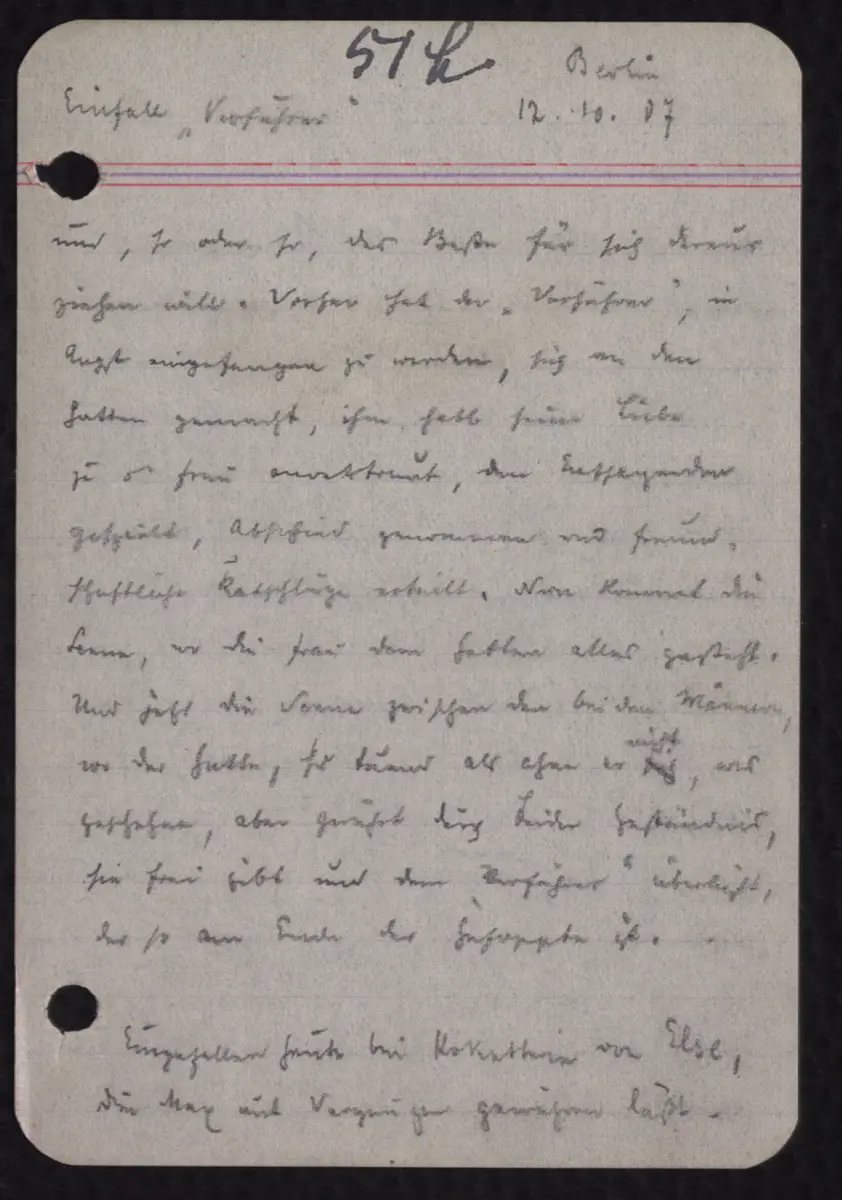 51 h
Berlin
Einfall „Verführer“ 12. 10. 07
und, so oder so, das Beste für sich daraus
ziehen will. Vorher hat der „Verführer“, in
Angst eingefangen zu werden, sich an den
Gatten gemacht, ihm halb seine Liebe
zu s. Frau anvertraut, den Entsagenden
gespielt, Abschied genommen und freund-
schaftliche Ratschläge erteilt. Nun kommt die
Scene, wo die Frau dem Gatten alles gesteht.
Und jetzt die Scene zwischen den beiden Männern,
wo der Gatte, so tuend als ahne er nicht, was
geschehen, aber gerührt durch Beider Geständnis,
sie frei gibt und dem „Verführer“ überläßt,
der so am Ende der Gefoppte ist.
Eingefallen heute bei Koketterie von Else,
die Max mit Vergnügen gewähren läßt.